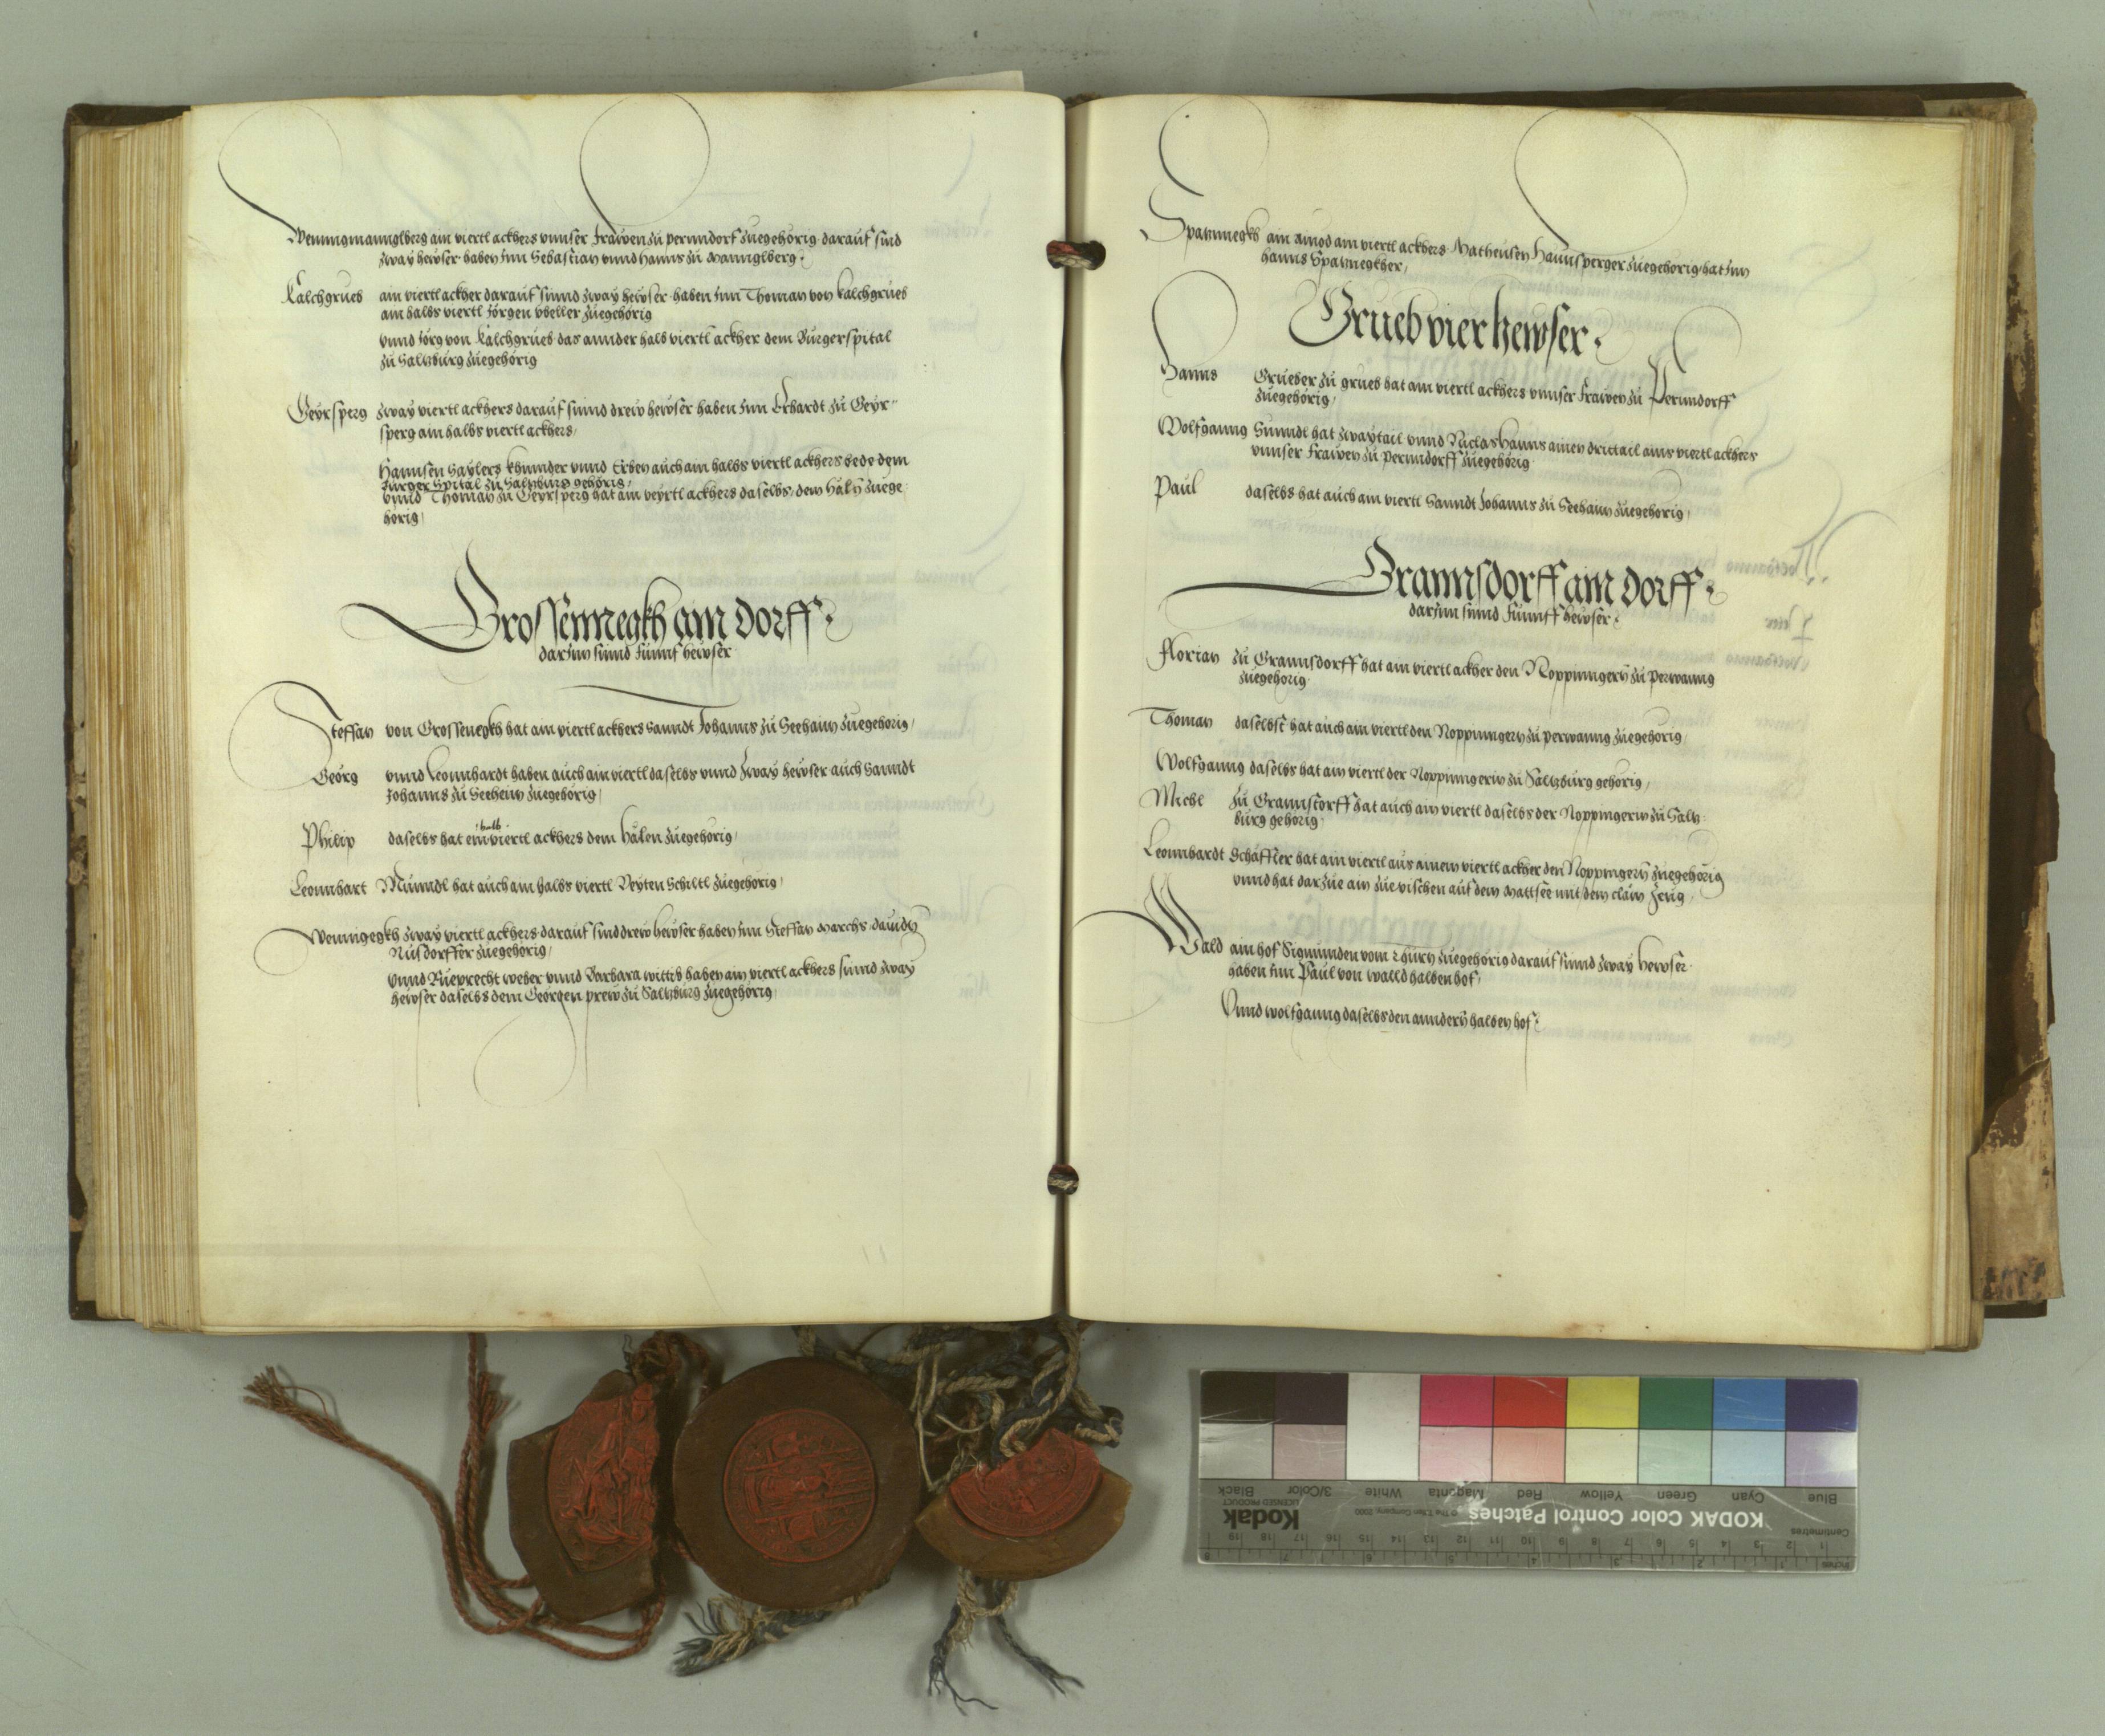 Wenngmanglberg ain viertl ackhers vnnser frawen zu perundorf zuegehörig darauf sind
zway hewser haben Inn Sebastian vnnd hanns zu Manglberg
Kalchgrueb ain viertl ackher darauf sinnd zway hewser haben Inn Thoman von kalchgrueb
ain halbs viertl Jörgen vbeller zuegehörig
vnnd Jörg von Kalchgrueb das annder halb viertl ackher dem Burgerspital
zu Saltzburg zuegehörig
Geyrsperg zway viertl ackhers darauf sinnd drew hewser haben Inn Erhardt zu Geyr
sperg ain halbs viertl ackhers
Hannsen Saylers khinnder vnnd Erben auch ain halbs viertl ackhers bede dem
Burger Spital zu Saltzburg gehörig
vnnd Thoman zu Geyrsperg hat ain veyrtl ackhers daselbs dem Häln zuege
hörig
Grossennegkh am Dorff
darInn sinnd funnf hewser
Steffan von Grossenegkh hat ain viertl ackhers Sanndt Johanns zu Seehaim zuegehörig
Georg vnnd Leonnhardt haben auch ain viertl daselbs vnnd zway hewser auch Sanndt
Johanns zu Seeheim zuegehörig
halb
Philip daselbs hat ein viertl ackhers dem Hälen zuegehörig
Leonnhart Münndl hat auch ain halbs viertl Veyten Schiltl zuegehörig
Wennigegkh zway viertl ackhers darauf sind drew hewser haben Inn Steffan Marchs
Nusdorffer zuegehörig
vnnd Rueprecht weber vnnd Barbara wittib haben ain viertl ackhers sinnd zway
hewser daselbs dem Georgen prew zu Saltzburg zuegehörig
Spannegkh am ain viertl ackhers Matheusen Haunsperger zuegehörig hat Inn
hanns Spannegkher
Grueb vier hewser
Hanns Grueber zu grueb hat ain viertl ackhers vnnser frawen zu Perundorff
zuegehörig
Wolfganng Sunndl hat zwaytail vnnd Niclas Hanns ainen drittail ains viertl ackhers
vnnser frawen zu perundorff zuegehörig
Paul daselbs hat auch ain viertl Sanndt Johanns zu Seehaim zuegehörig
Grannsdorff am Dorff
darInn sinnd funnff hewser
Florian zu Grannsdorff hat ain viertl ackher den Noppinngern zu perwanng
zuegehörig
Thoman daselbst hat auch ain viertl den Noppinngern zu perwanng zuegehörig
Wolfganng daselbs hat ain viertl der Noppinngerin zu Saltzburg gehörig
Michl zu Grannstorff hat auch ain viertl daselbs der Noppingerin zu Saltz
burg gehörig
Leonnhardt Schäffler hat ain viertl aus ainem viertl ackher den Noppingern zuegehörig
vnnd hat darzue ain zue vischen auf dem Mattsee mit dem clain Zeug
Wald ain hof Sigmunden vom Thurn zuegehörig darauf sinnd zway hewser
haben Inn Paul von walld halben hof
Vnnd wolfganng daselbs den anndern halben hof
Blue Cyan Green Yellow Red Magenta White 3/Color Black
KODAK Color Control Patches
Kodak
LICENSED PRODUCT
Centimetres
1 2 3 4 5 6 7 8 9 10 11 12 13 14 15 16 17 18 19
Inches